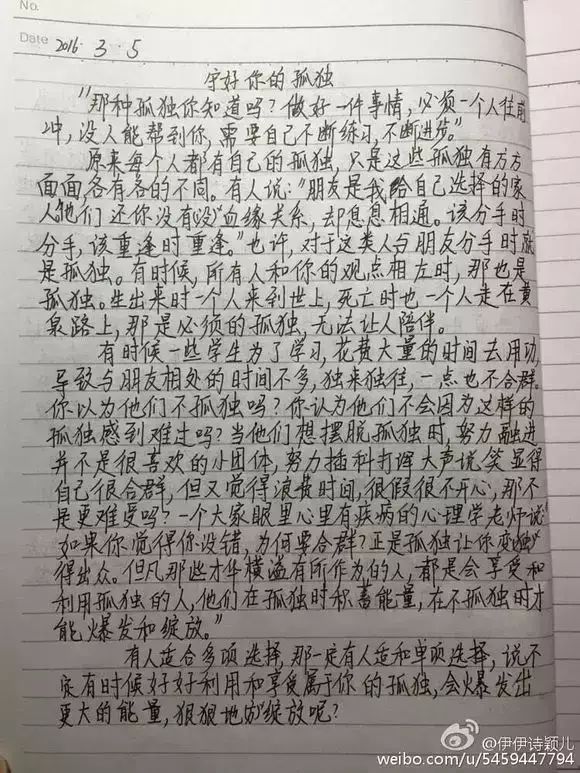 No.
Date 2016. 3. 5
守好你的孤独
"那种孤独你知道吗?做好一件事情,必须一个人往前
冲,没人能帮到你,需要自己不断练习,不断进步。"
原来每个人都有自己的孤独,只是这些孤独有方方
面面,各有各的不同。有人说:"朋友是我给自己选择的家
人,他们还你没有血缘关系,却息息相通。该分手时
分手,该重逢时重逢。"也许,对于这类人与朋友分手时就
是孤独。有时候,所有人和你的观点相左时,那也是
孤独。生出来时一个人来到世上,死亡时也一个人走在黄
泉路上,那是必须的孤独,无法让人陪伴。
有时候一些学生为了学习,花费大量的时间去用功,
导致与朋友相处的时间不多,独来独往,一点也不合群。
你以为他们不孤独吗?你认为他们不会因为这样的
孤独感到难过吗?当他们想摆脱孤独时,努力融进
并不是很喜欢的小团体,努力插科打诨大声说笑显得
自己很合群,但又觉得浪费时间,很假很不开心,那不
是更难受吗?一个大家眼里心里有疾病的心理学老师说:
"如果你觉得你没错,为何要合群?正是孤独让你变独
得出众。但凡那些才华横溢有所作为的人,都是会享受和
利用孤独的人,他们在孤独时积蓄能量,在不孤独时才
能爆发和绽放。"
有人适合多项选择,那一定有人适和单项选择,说不
定有时候好好利用和享受属于你的孤独,会爆发出
更大的能量,狠狠地绽放呢?
@伊伊诗颖儿
weibo.com/u/5459447794